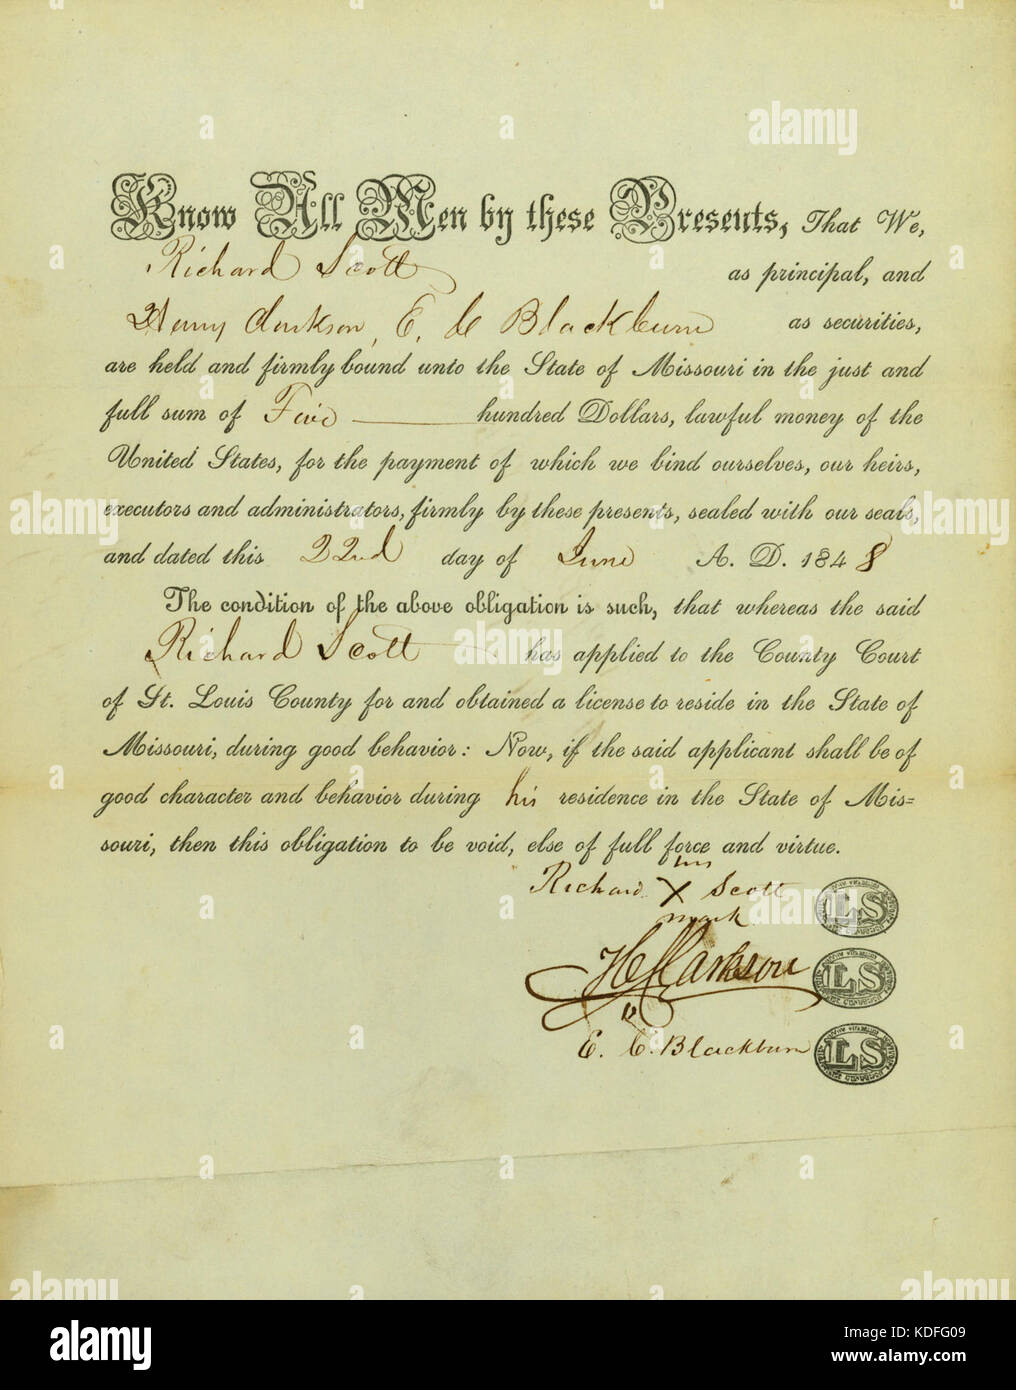 Know All Men by these Presents, That We,
Richard Scott as principal, and
Henry Clarkson, E. C. Blackburn as securities,
are held and firmly bound unto the State of Missouri in the just and
full sum of Five hundred Dollars, lawful money of the
United States, for the payment of which we bind ourselves, our heirs,
executors and administrators, firmly by these presents, sealed with our seals,
and dated this 22nd day of June A. D. 1848
The condition of the above obligation is such, that whereas the said
Richard Scott has applied to the County Court
of St. Louis County for and obtained a license to reside in the State of
Missouri, during good behavior: Now, if the said applicant shall be of
good character and behavior during his residence in the State of Mis=
souri, then this obligation to be void, else of full force and virtue.
his
Richard X Scott LS
mark
H Clarkson LS
E. C. Blackburn LS
alamy
Image ID: KDFG09
www.alamy.com